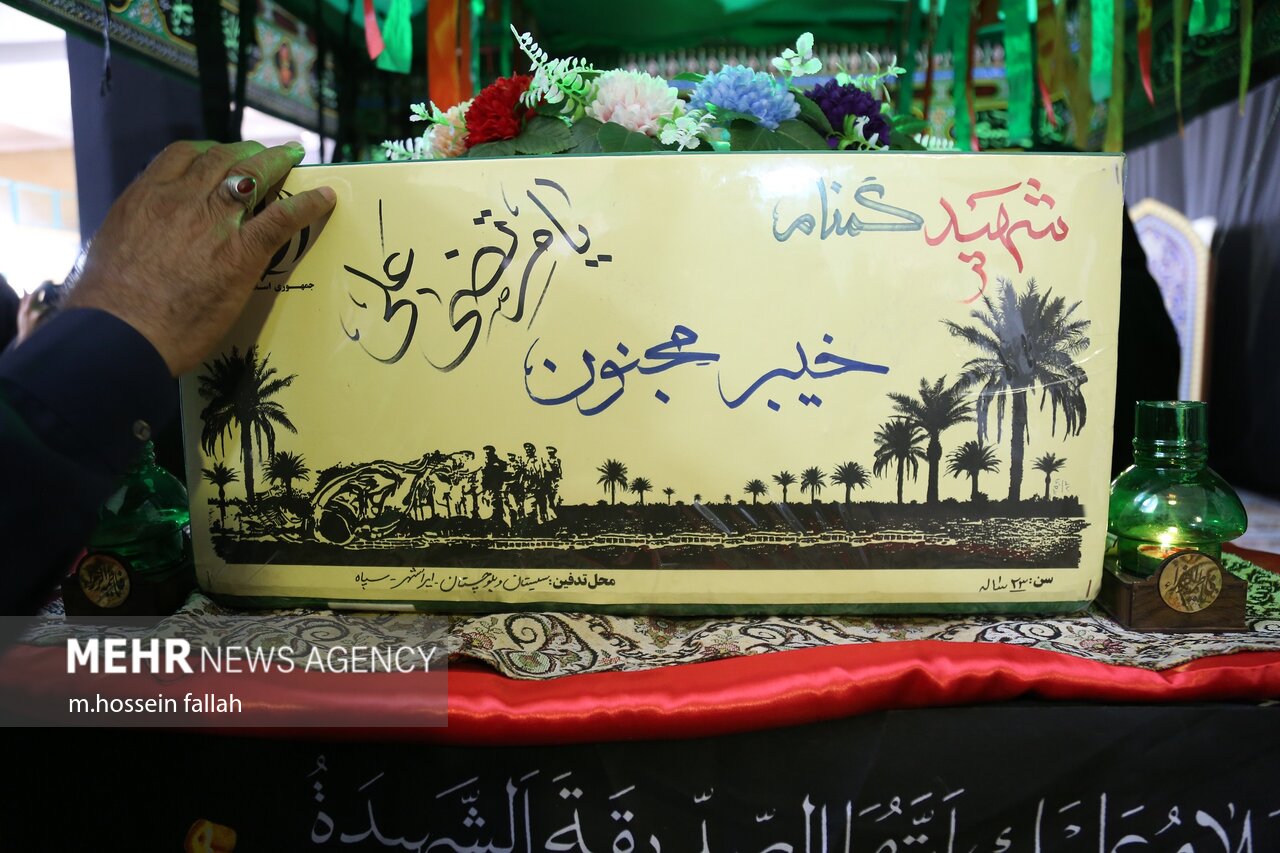 شهید گمنام
یا مرتضی علی
جمهوری
خیبر مجنون
سن: ۲۳ ساله
محل تدفین: سیستان و بلوچستان - ایرانشهر - سپاه
MEHR NEWS AGENCY
m.hossein fallah
عَلَیْكِ اَیَّتُهَا الصِّدّیقَةُ الشَّهیدَةُ